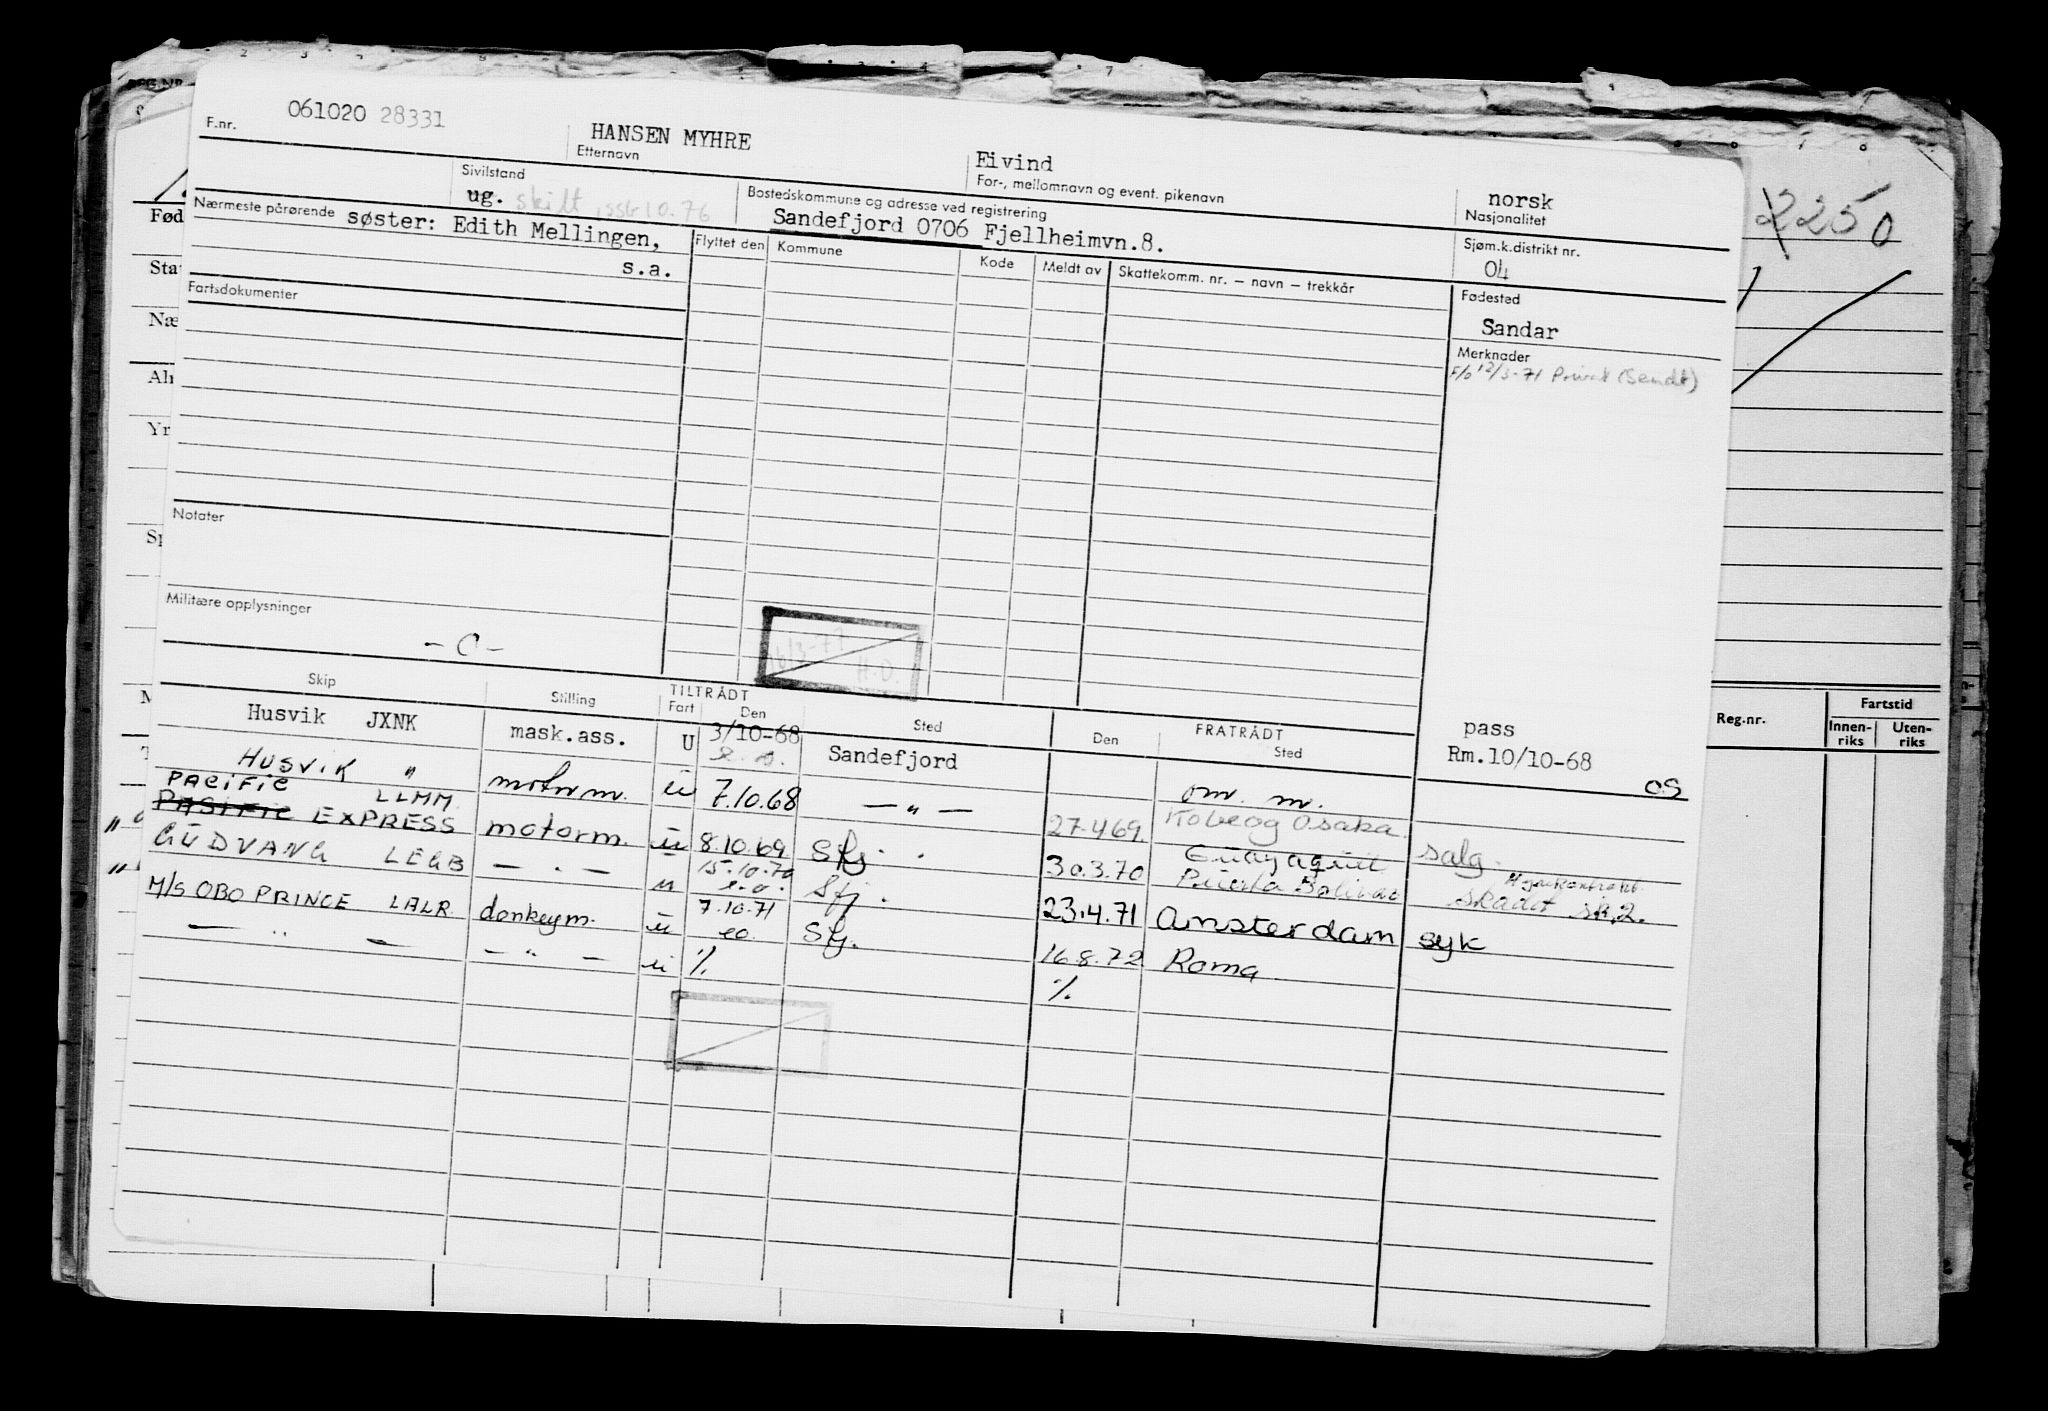 061020 28331
F.nr.
HANSEN MYHRE
Etternavn
Eivind
For-, mellomnavn og event. pikenavn
norsk
Nasjonalitet
Sivilstand
ug. skilt
Bostedskommune og adresse ved registrering
Sandefjord 0706 Fjellheimvn.8.
Sjøm.k.distrikt nr.
04
Nærmeste pårørende søster: Edith Mellingen,
s.a.
Flyttet den Kommune Kode Meldt av Skattekomm. nr. – navn – trekkår
Fødested
Sandar
Fartsdokumenter
Merknader
12/3-71 Privat (Sendt)
Notater
Militære opplysninger
- C -
16/3-71
H.O.
Skip Stilling TILTRÅDT Fart Den Sted FRATRÅDT Den Sted
pass
Rm.10/10-68
OS
Husvik JXNK mask.ass. U 3/10-68 Sandefjord
HUSVIK " motorm. ü 7.10.68 — " — om. m.
PACIFIC
PASIFIC EXPRESS LLMM motorm. ü 8.10.69 Sfj. 27.4.69 Kobe og Osaka salg.
GUDVANG LEGB — " — u 15.10.70 Sfj. 30.3.70 Guayaquil
Puerto Bolivar skadet
M/S OBO PRINCE LALR donkeym. ü 7.10.71 Sfj. 23.4.71 Amsterdam syk
eo.
— " — — " — ü % 16.8.72 Roma
%
2250
Fød
Sta
Næ
Yr
Sp
Reg.nr.
Fartstid
Innen-
riks
Uten-
riks